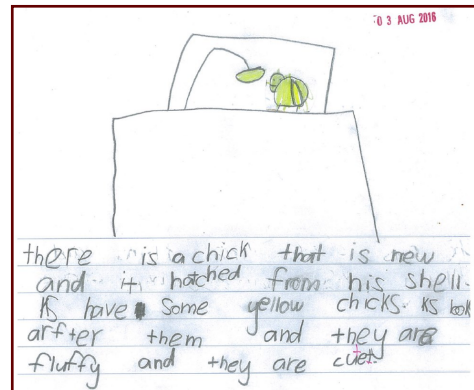 03 AUG 2016
there is a chick that is new
and it hatched from his shell.
KS have some yellow chicks. KS look
arfter them and they are
fluffy and they are cuet.